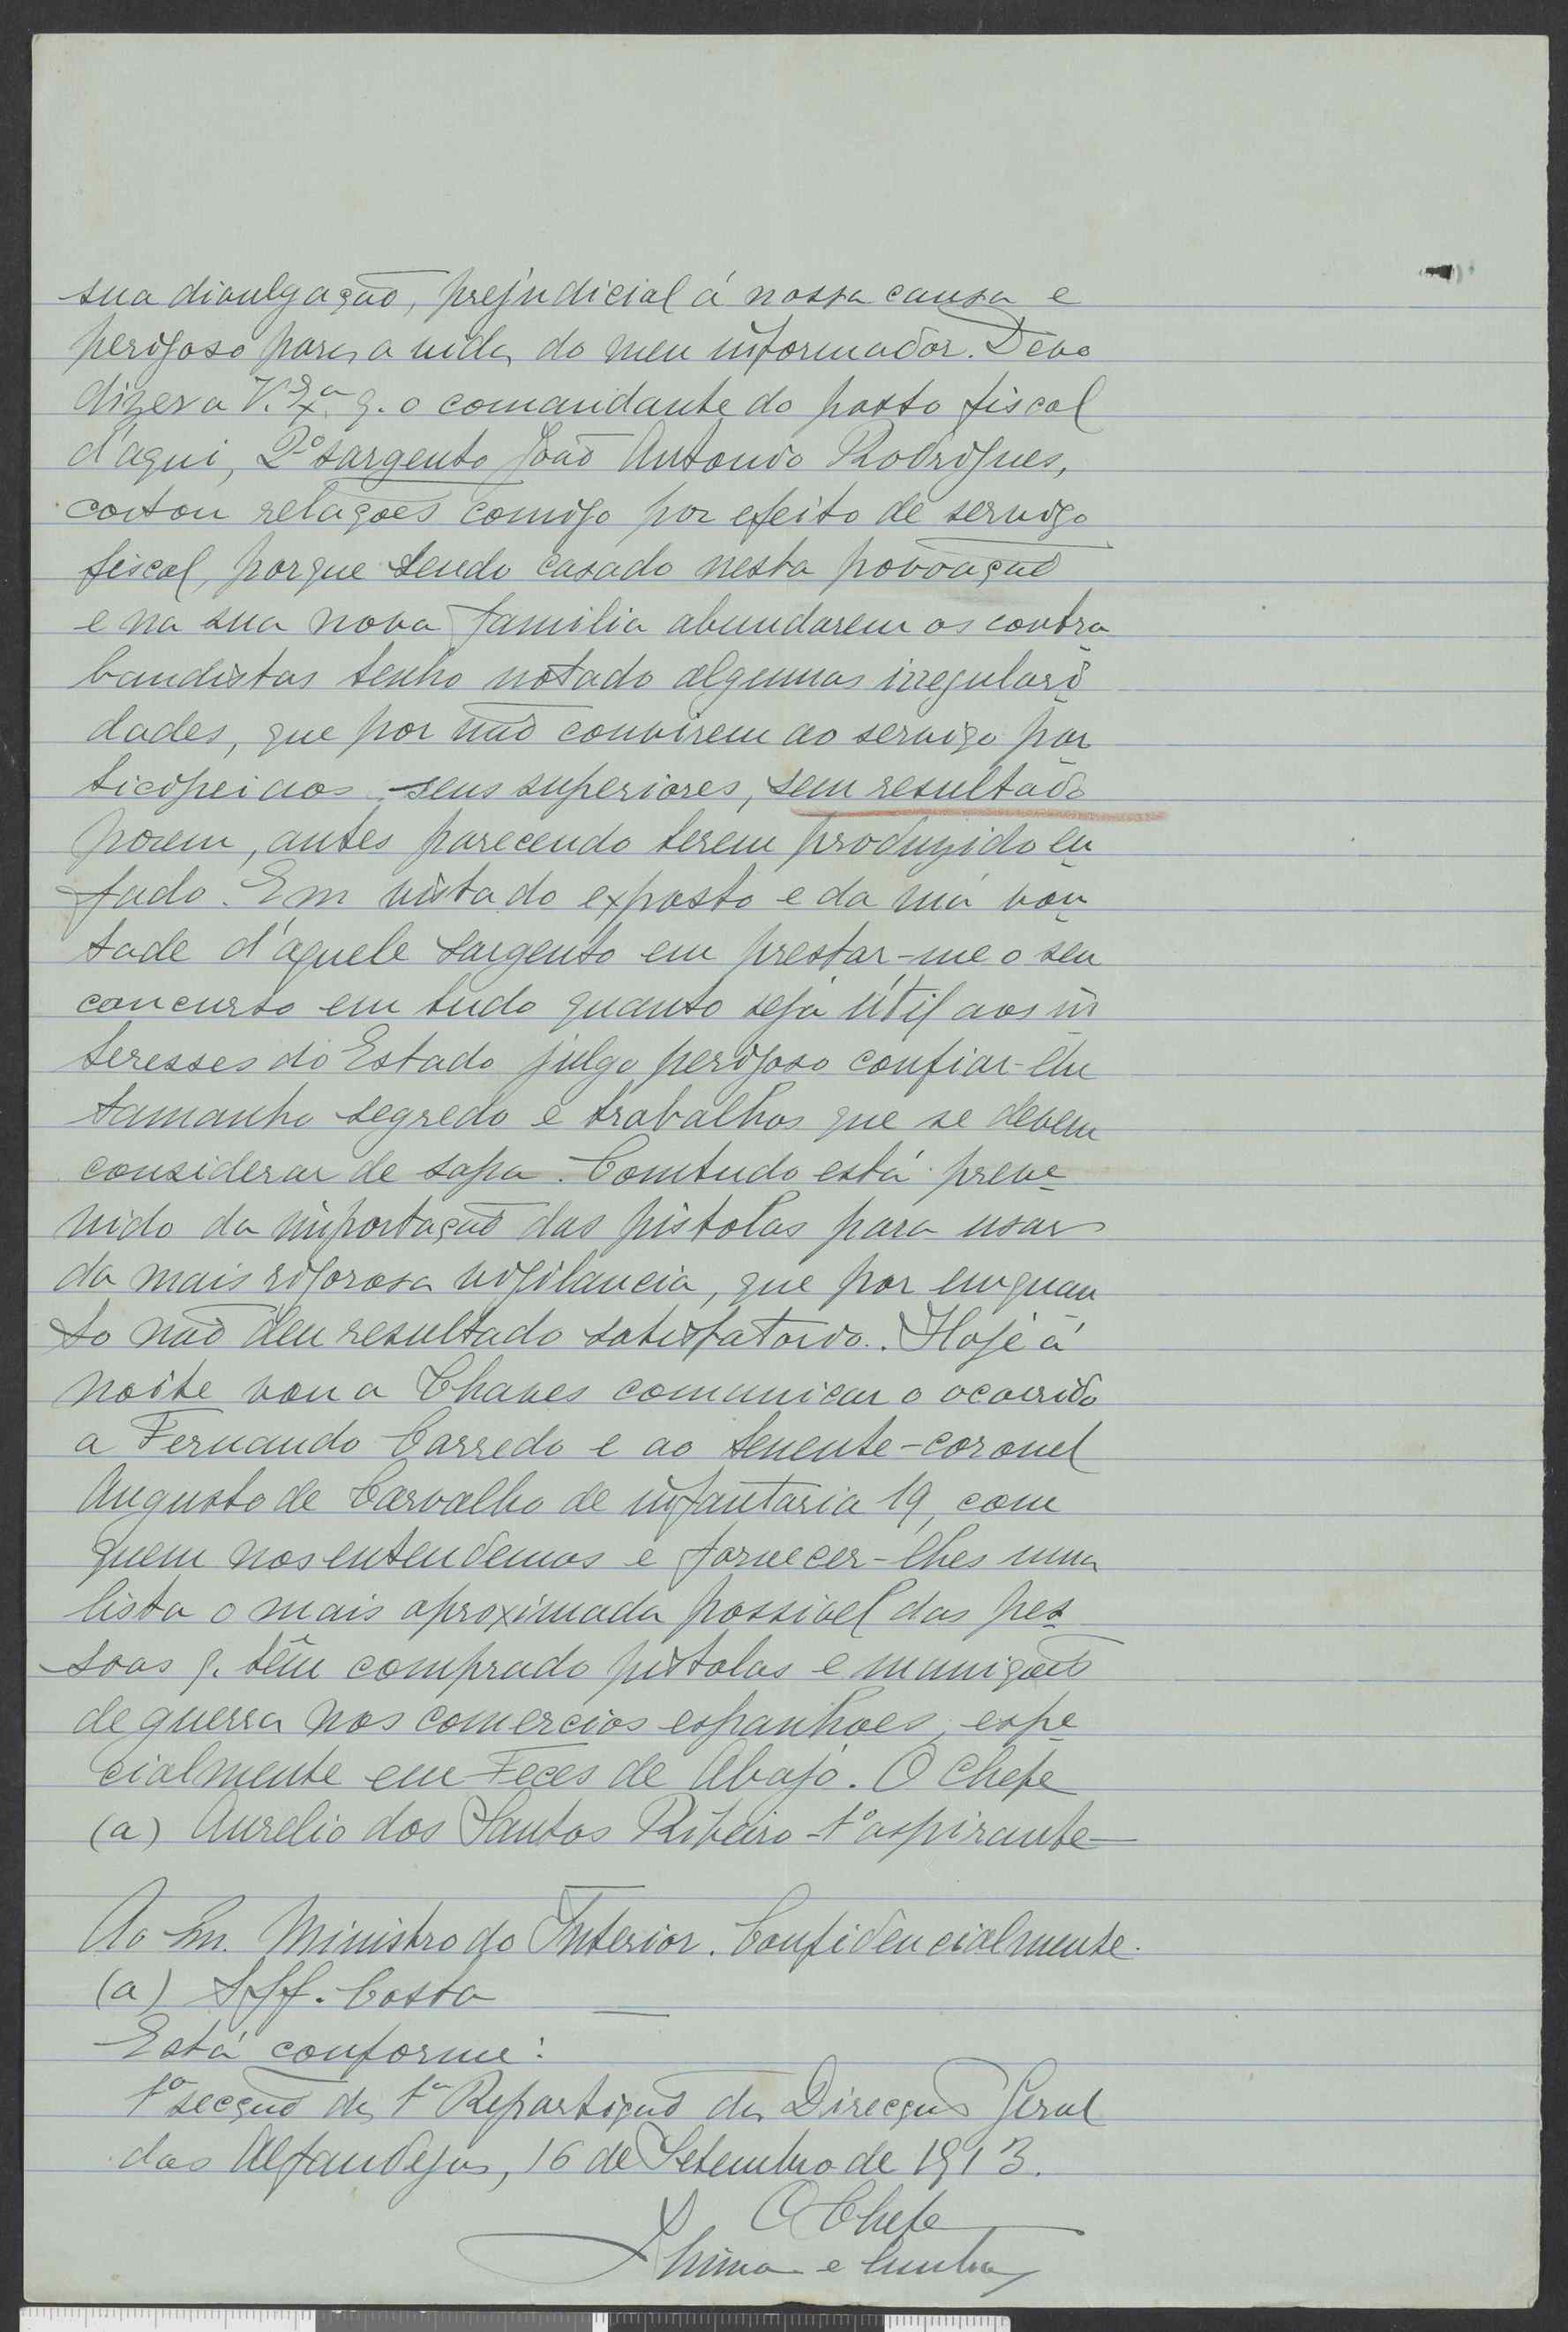 sua divulgação, prejudicial á nossa causa e
perigoso para a vida do meu informador. Devo
dizer a V. Ex.ª q. o comandante do posto fiscal
d'aqui, 2º sargento João Antonio Rodrigues,
cortou relações comigo por efeito de serviço
fiscal, porque sendo casado nesta povoação
e na sua nova familia abundarem os contra
bandistas tenho notado algumas irregulari
dades, que por não convirem ao serviço par
ticipei aos seus superiores, sem resultado
porem, antes parecendo terem produzido en
fado. Em vista do exposto e da má von
tade d'aquele sargento em prestar-me o seu
concurso em tudo quanto seja útil aos in
teresses do Estado julgo perigoso confiar-lhe
tamanho segredo e trabalhos que se devem
considerar de sapa. Comtudo está preve
nido da importação das pistolas para usar
da mais rigorosa vigilancia, que por emquan
to não deu resultado satisfatorio. Hoje á
noite vou a Chaves comunicar o ocorrido
a Fernando Carredo e ao tenente-coronel
Augusto de Carvalho de infantaria 19, com
quem nos entendemos e fornecer-lhes uma
lista o mais aproximada possivel das pes
soas q. têm comprado pistolas e munições
de guerra nos comercios espanhoes, espe
cialmente em Feces de Abajo. O Chefe
(a) Aurelio dos Santos Ribeiro - 1º aspirante -
Ao Sr. Ministro do Interior. Confidencialmente.
(a) Aff. Costa
Está conforme:
1ª secção da 1ª Repartição da Direcção Geral
das Alfandegas, 16 de Setembro de 1913.
O Chefe
e Cunha